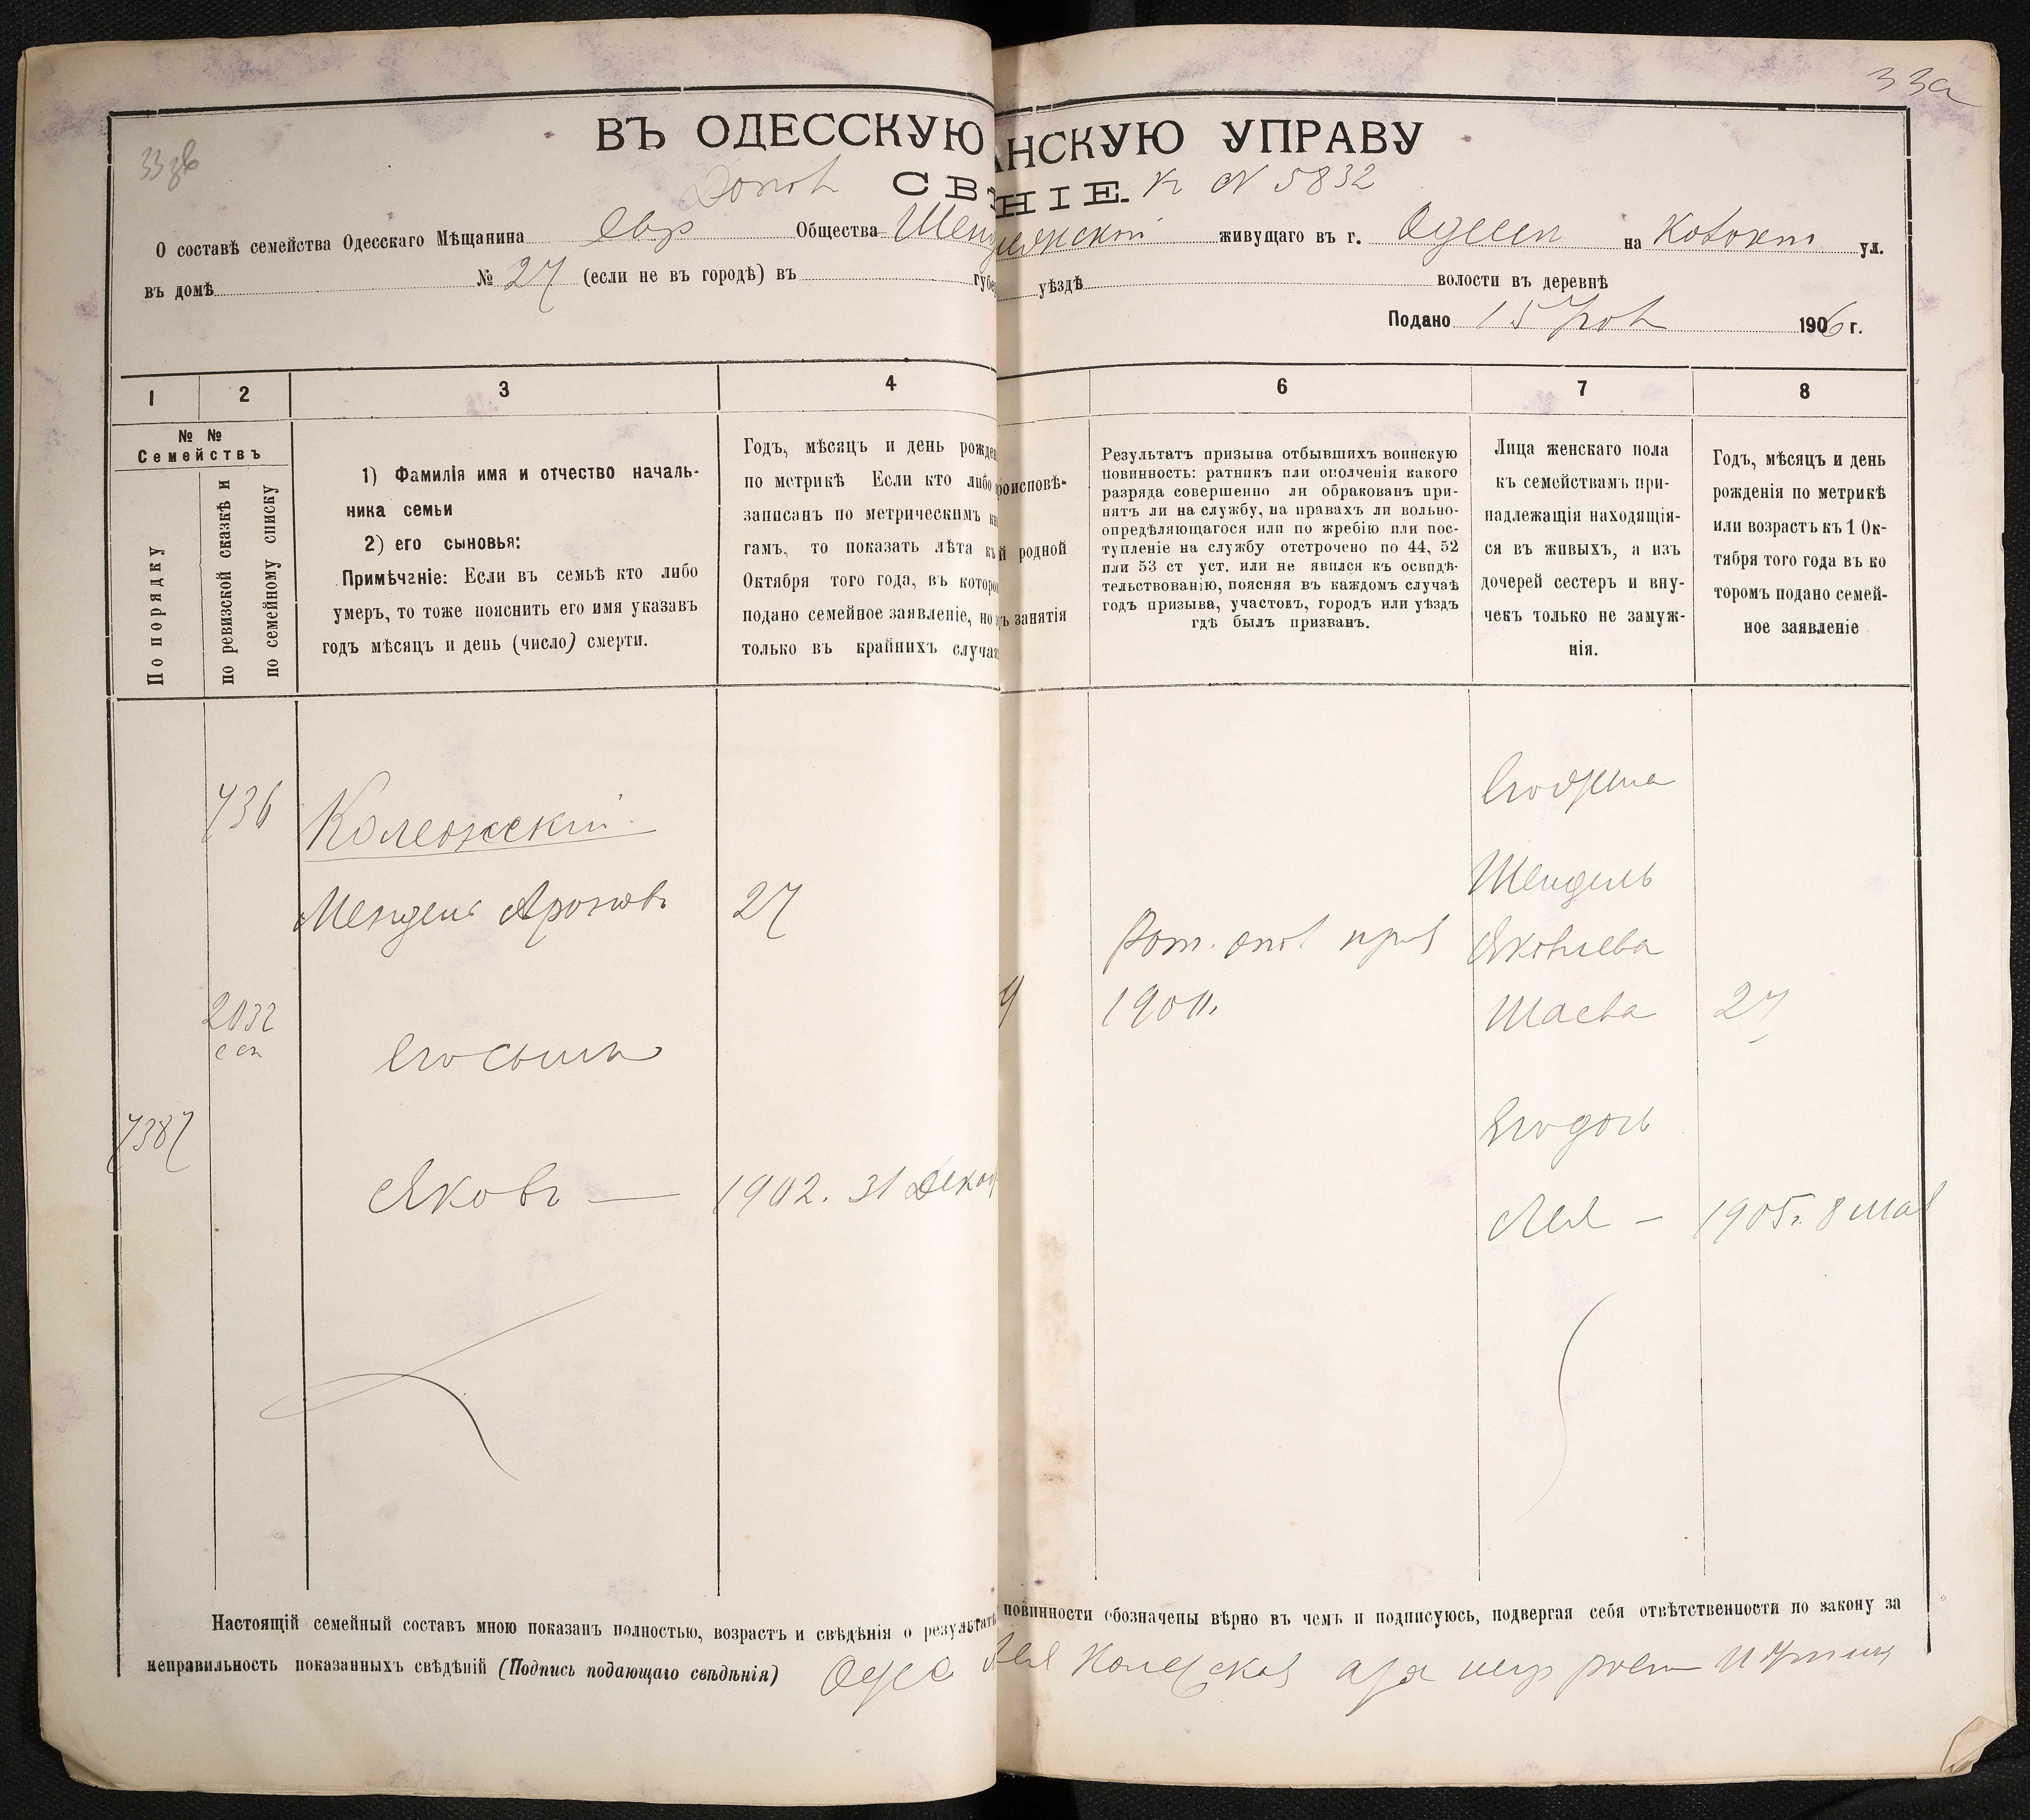 33а
ВЪ ОДЕССКУЮ АНСКУЮ УПРАВУ
Допол СВѢ НІЕ. К N 5832
О составѣ семейства Одесскаго Мѣщанина Евр Общества живущаго въ г. Одессѣ на ул.
въ домѣ № 27 (если не въ городѣ) въ губе уѣздѣ волости въ деревнѣ
Подано 15 1906 г.
1 2 3 4 6 7 8
№ №
Семействъ
По порядку
по ревизской сказкѣ и
по семейному списку
1) Фамилія имя и отчество началь-
ника семьи
2) его сыновья:
Примѣчаніе: Если въ семьѣ кто либо
умеръ, то тоже пояснить его имя указавъ
годъ мѣсяцъ и день (число) смерти.
Годъ, мѣсяцъ и день рожде
по метрикѣ Если кто либо
записанъ по метрическимъ кн
гамъ, то показать лѣта къ
Октября того года, въ которо
подано семейное заявленіе, но э
только въ крайнихъ случая
роисповѣ-
й родной
ъ занятія
Результатъ призыва отбывшихъ воинскую
повинность: ратникъ или ополченія какого
разряда совершенно ли обракованъ при-
нятъ ли на службу, на правахъ ли вольно-
опредѣляющагося или по жребію или пос-
тупленіе на службу отстрочено по 44, 52
или 53 ст уст. или не явился къ освидѣ-
тельствованію, поясняя въ каждомъ случаѣ
годъ призыва, участокъ, городъ или уѣздъ
гдѣ былъ призванъ.
Лица женскаго пола
къ семействамъ при-
надлежащія находящія-
ся въ живыхъ, а изъ
дочерей сестеръ и вну-
чекъ только не замуж-
нія.
Годъ, мѣсяцъ и день
рожденія по метрикѣ
или возрастъ къ 1 Ок-
тября того года въ ко
торомъ подано семей-
ное заявленіе
736 Колежскій
Мендель Ароновъ 27
2032
его сынъ
7387
Яковъ — 1902. 31 Декаб
Рат. опол приз
1901.
Его жена
Шендель
Яковлева
Шаева 27
Его дочь
Лея — 1905г. 8 мая
Настоящій семейный составъ мною показанъ полностью, возрастъ и свѣдѣнія о результатѣ повинности обозначены вѣрно въ чемъ и подписуюсь, подвергая себя отвѣтственности по закону за
неправильность показанныхъ свѣдѣній (Подпись подающаго свѣдѣнія)